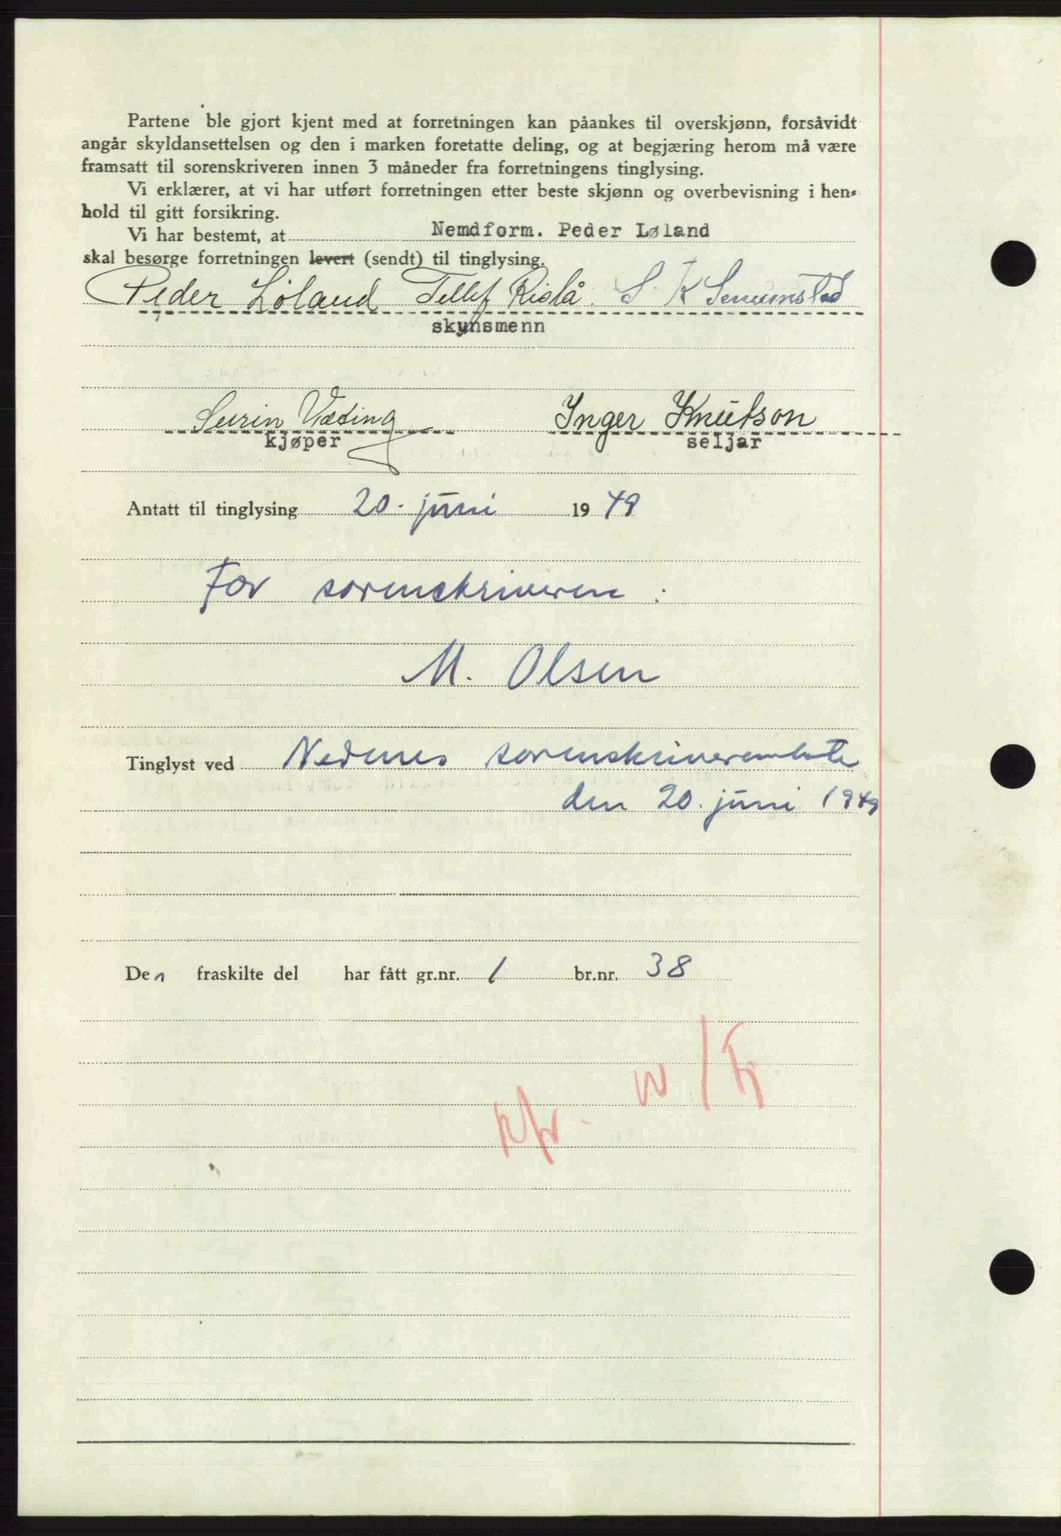 Partene ble gjort kjent med at forretningen kan påankes til overskjønn, forsåvidt
angår skyldansettelsen og den i marken foretatte deling, og at begjæring herom må være
framsatt til sorenskriveren innen 3 måneder fra forretningens tinglysing.
Vi erklærer, at vi har utført forretningen etter beste skjønn og overbevisning i hen-
hold til gitt forsikring.
Vi har bestemt, at Nemdform. Peder Løland
skal besørge forretningen levert (sendt) til tinglysing.
Peder Løland Tellef Rislå. S. K
skynsmenn
Inger Knutson
kjøper seljar
Antatt til tinglysing 20. juni 1949
For sorenskriveren:
M. Olsen
Tinglyst ved Nedenes sorenskriverembete
den 20. juni 1949
Den fraskilte del har fått gr.nr. 1 br.nr. 38